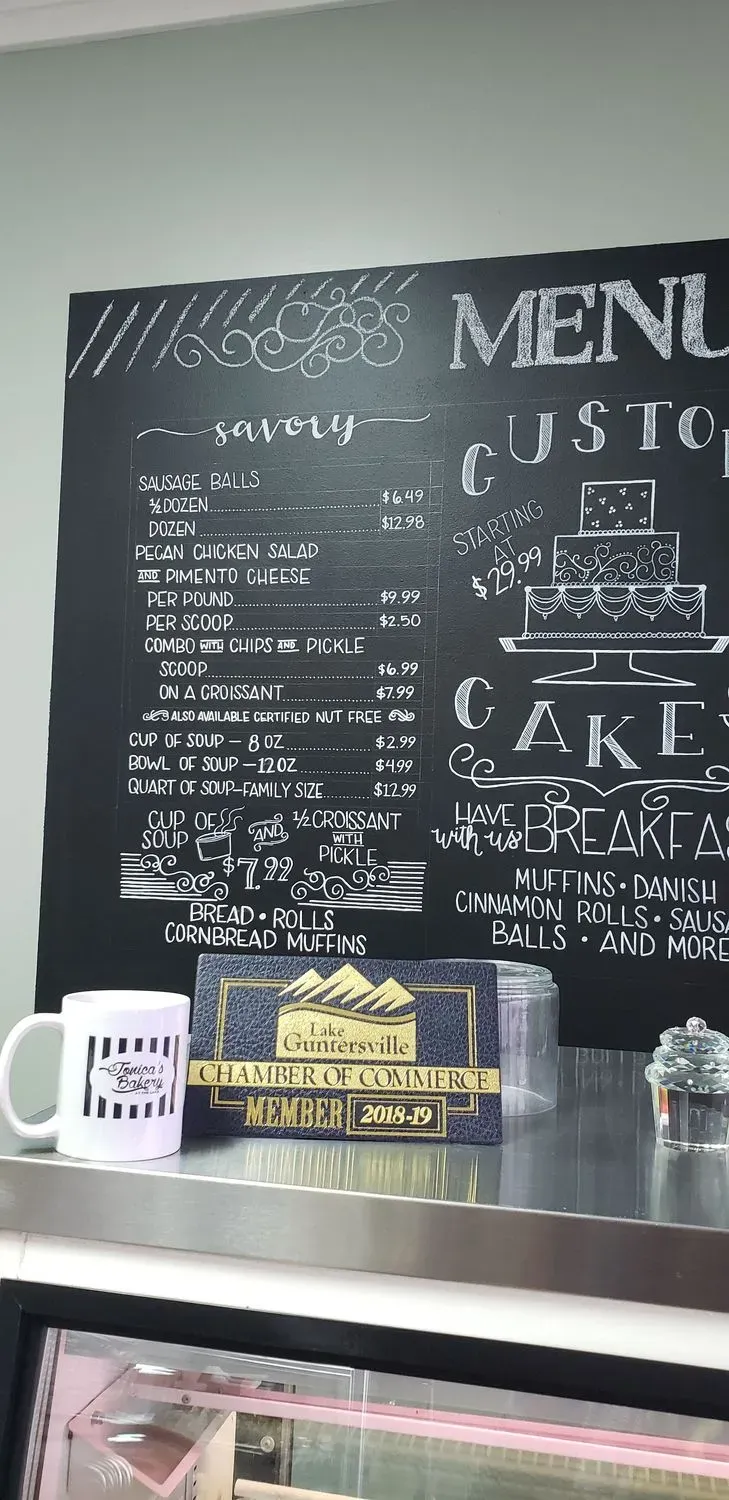 MENU
savory
SAUSAGE BALLS
½ DOZEN........ $6.49
DOZEN........ $12.98
PECAN CHICKEN SALAD
AND PIMENTO CHEESE
PER POUND........ $9.99
PER SCOOP........ $2.50
COMBO WITH CHIPS AND PICKLE
SCOOP........ $6.99
ON A CROISSANT........ $7.99
ALSO AVAILABLE CERTIFIED NUT FREE
CUP OF SOUP — 8 OZ........ $2.99
BOWL OF SOUP — 12 OZ........ $4.99
QUART OF SOUP-FAMILY SIZE........ $12.99
CUP OF SOUP AND ½ CROISSANT
WITH PICKLE
$7.99
BREAD • ROLLS
CORNBREAD MUFFINS
CUSTO
STARTING
AT
$29.99
CAKE
HAVE
with us BREAKFA
MUFFINS • DANISH
CINNAMON ROLLS • SAUSA
BALLS • AND MORE
Tonica's
Bakery
Lake
Guntersville
CHAMBER OF COMMERCE
MEMBER 2018-19